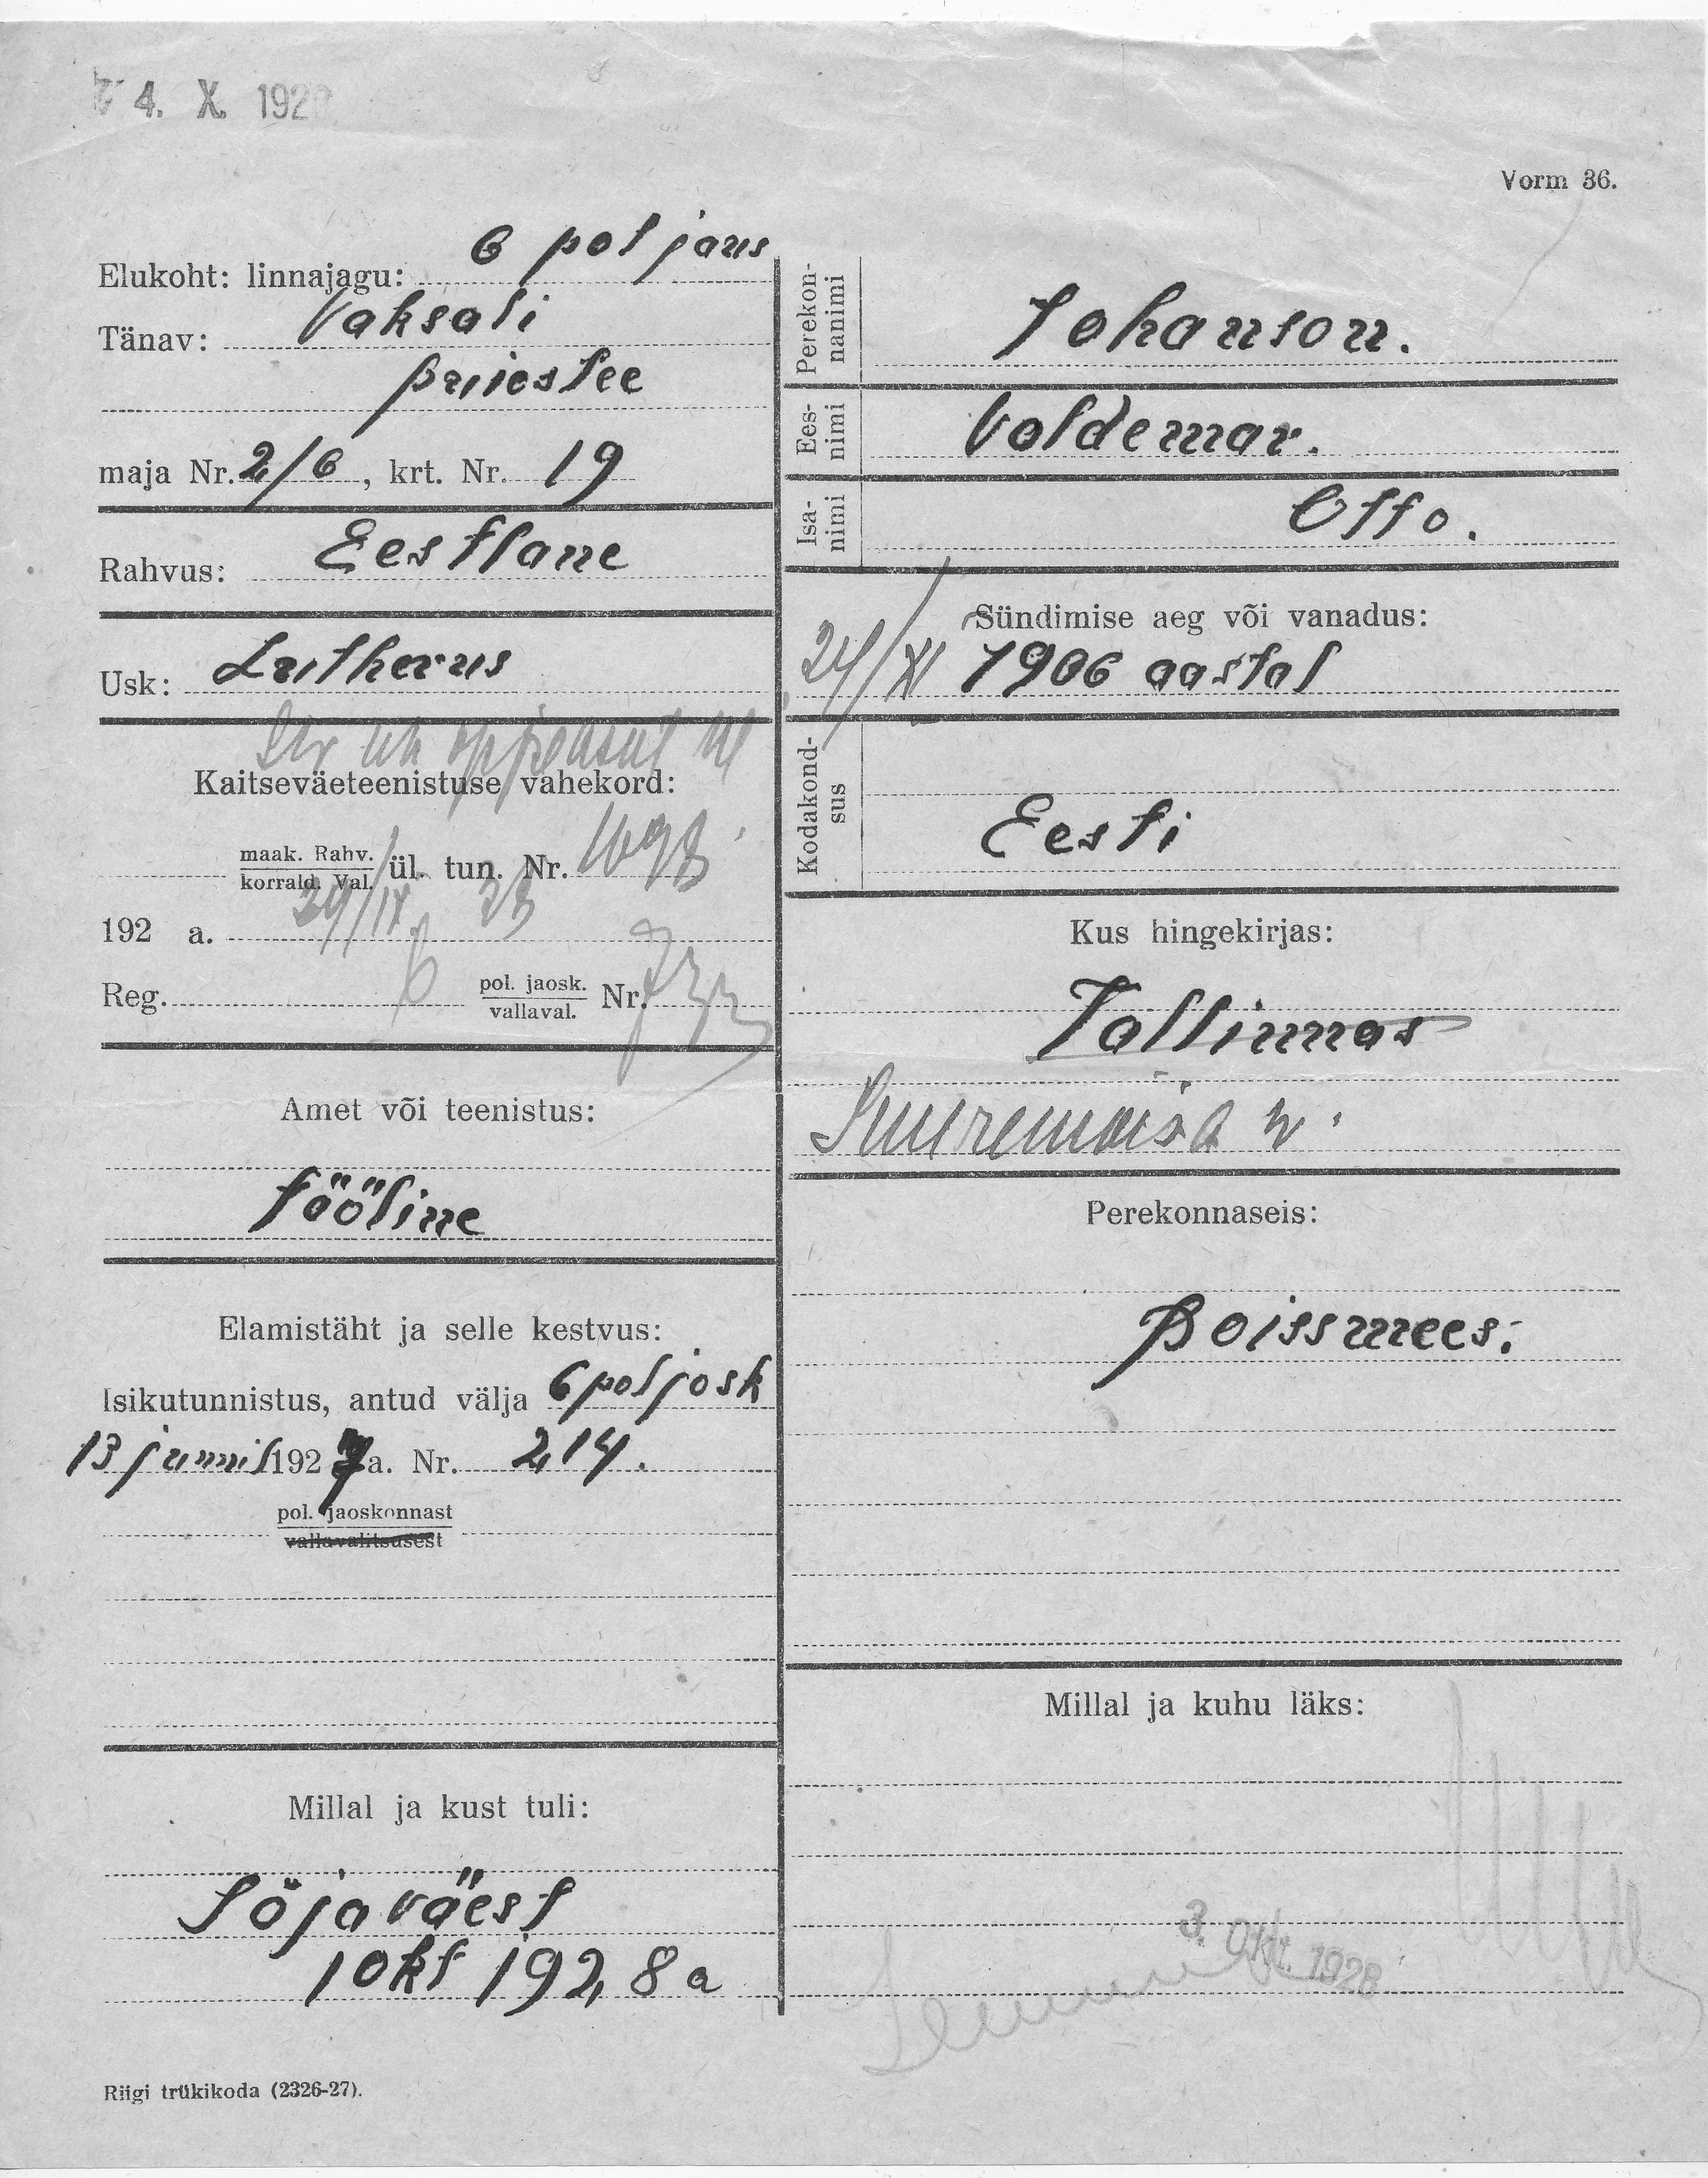 4. X. 192
Vorm 36.
Elukoht: linnajagu: 6 pol jaus
Tänav: Vaksali
puiestee
maja Nr. 2/6, krt. Nr. 19
Rahvus: Eestlane
Usk: Lutherus
Kaitseväeteenistuse vahekord:
maak. Rahv.
korrald. Val. ül. tun. Nr.
192 a. 29/IX 28
Reg. 6 pol. jaosk.
vallaval. Nr.
Amet või teenistus:
tööline
Elamistäht ja selle kestvus:
Isikutunnistus, antud välja 6 pol josk
13 junnil 1927 a. Nr. 214.
pol. jaoskonnast
vallavalitsusest
Millal ja kust tuli:
Sõjaväest
1 okt 1928 a
Riigi trükikoda (2326-27).
Perekonnanimi
Johanson.
Eesnimi
Voldemar.
Isanimi
Otto.
Sündimise aeg või vanadus:
24/XI 1906 aastal
Kodakondsus
Eesti
Kus hingekirjas:
Tallinnas
Suuremõisa v.
Perekonnaseis:
Poissmees.
Millal ja kuhu läks:
3. Okt. 1928